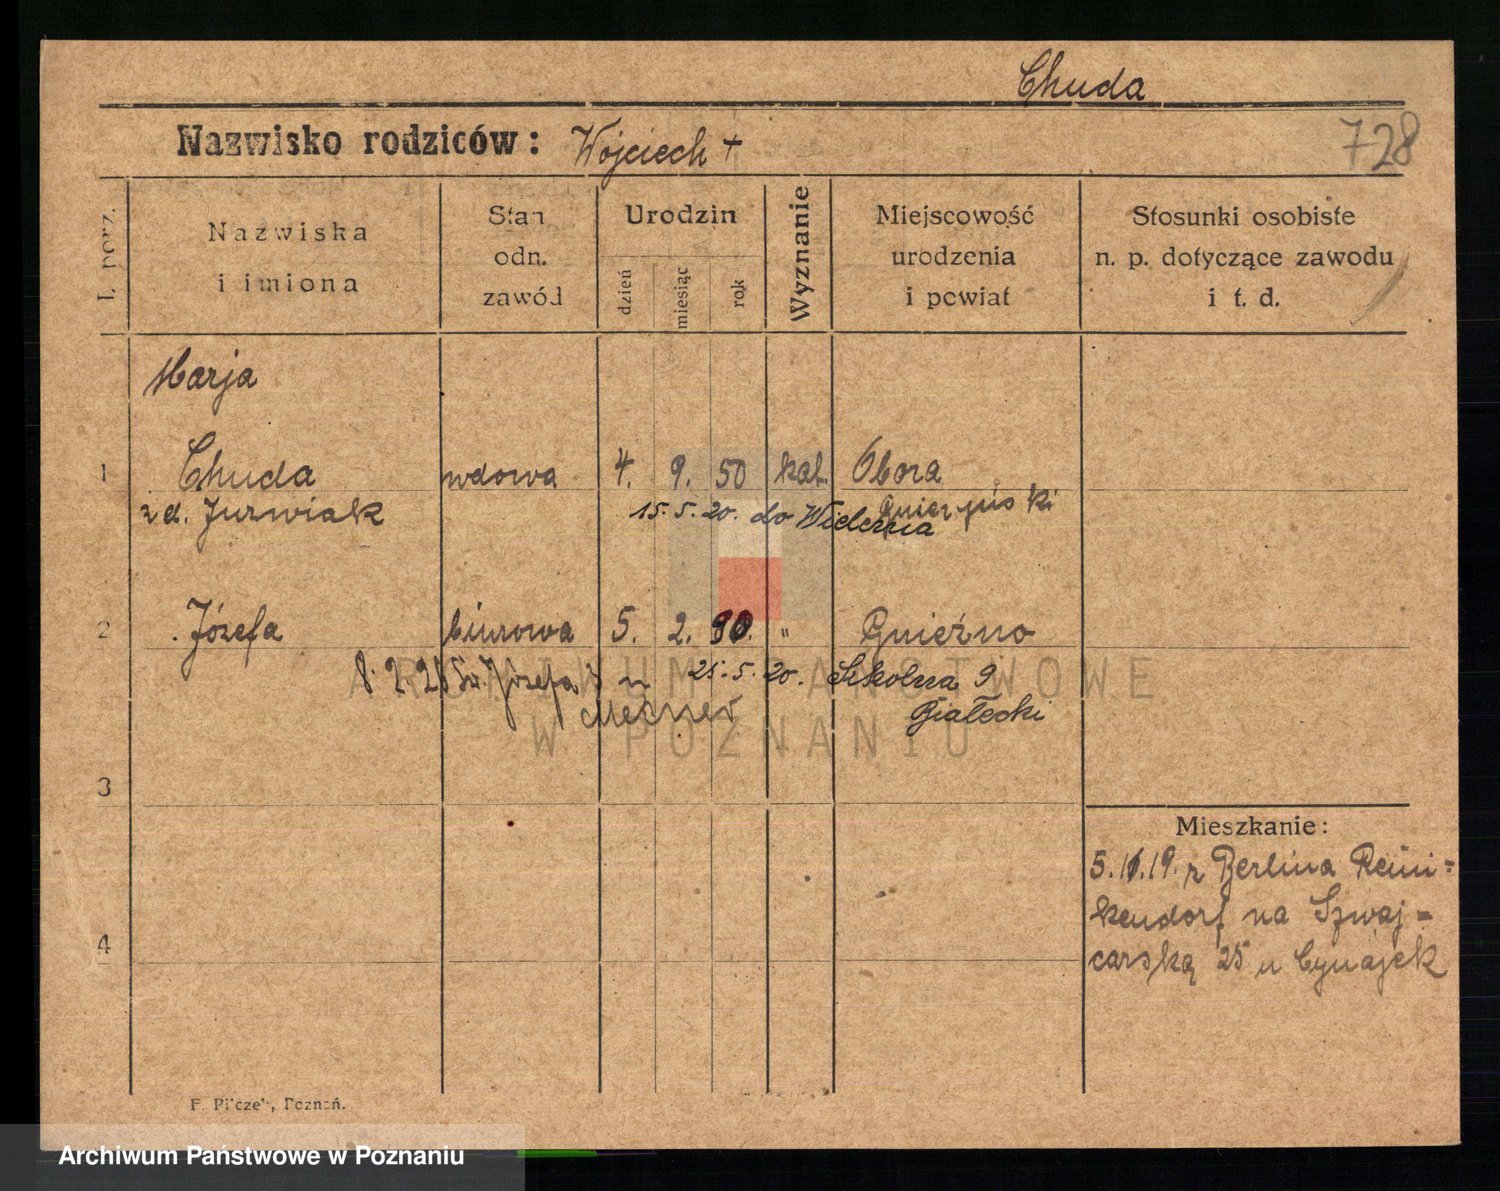 Chuda
Nazwisko rodziców: Wojciech +
728
l. porz.
Nazwiska
i imiona
Stan
odn.
zawód
Urodzin
dzień
miesiąc
rok
Wyznanie
Miejscowość
urodzenia
i powiat
Stosunki osobiste
n. p. dotyczące zawodu
i t. d.
Marja
1 Chuda wdowa 4. 9. 50 kat. Obora
z d. Jurwiak 15. 5. 20. do
2 Józefa biurowa 5. 2. 90. " Gnieźno
8. 2. 28 Św. Józefa 3 u 25. 5. 20. Szkolna 9
Białecki
ARCHIWUM PAŃSTWOWE
W POZNANIU
3
Mieszkanie:
5.11.19. z Berlina Reini=
kendorf na Szwaj=
4 carską 25 u
F. Pilczek, Poznań.
Archiwum Państwowe w Poznaniu